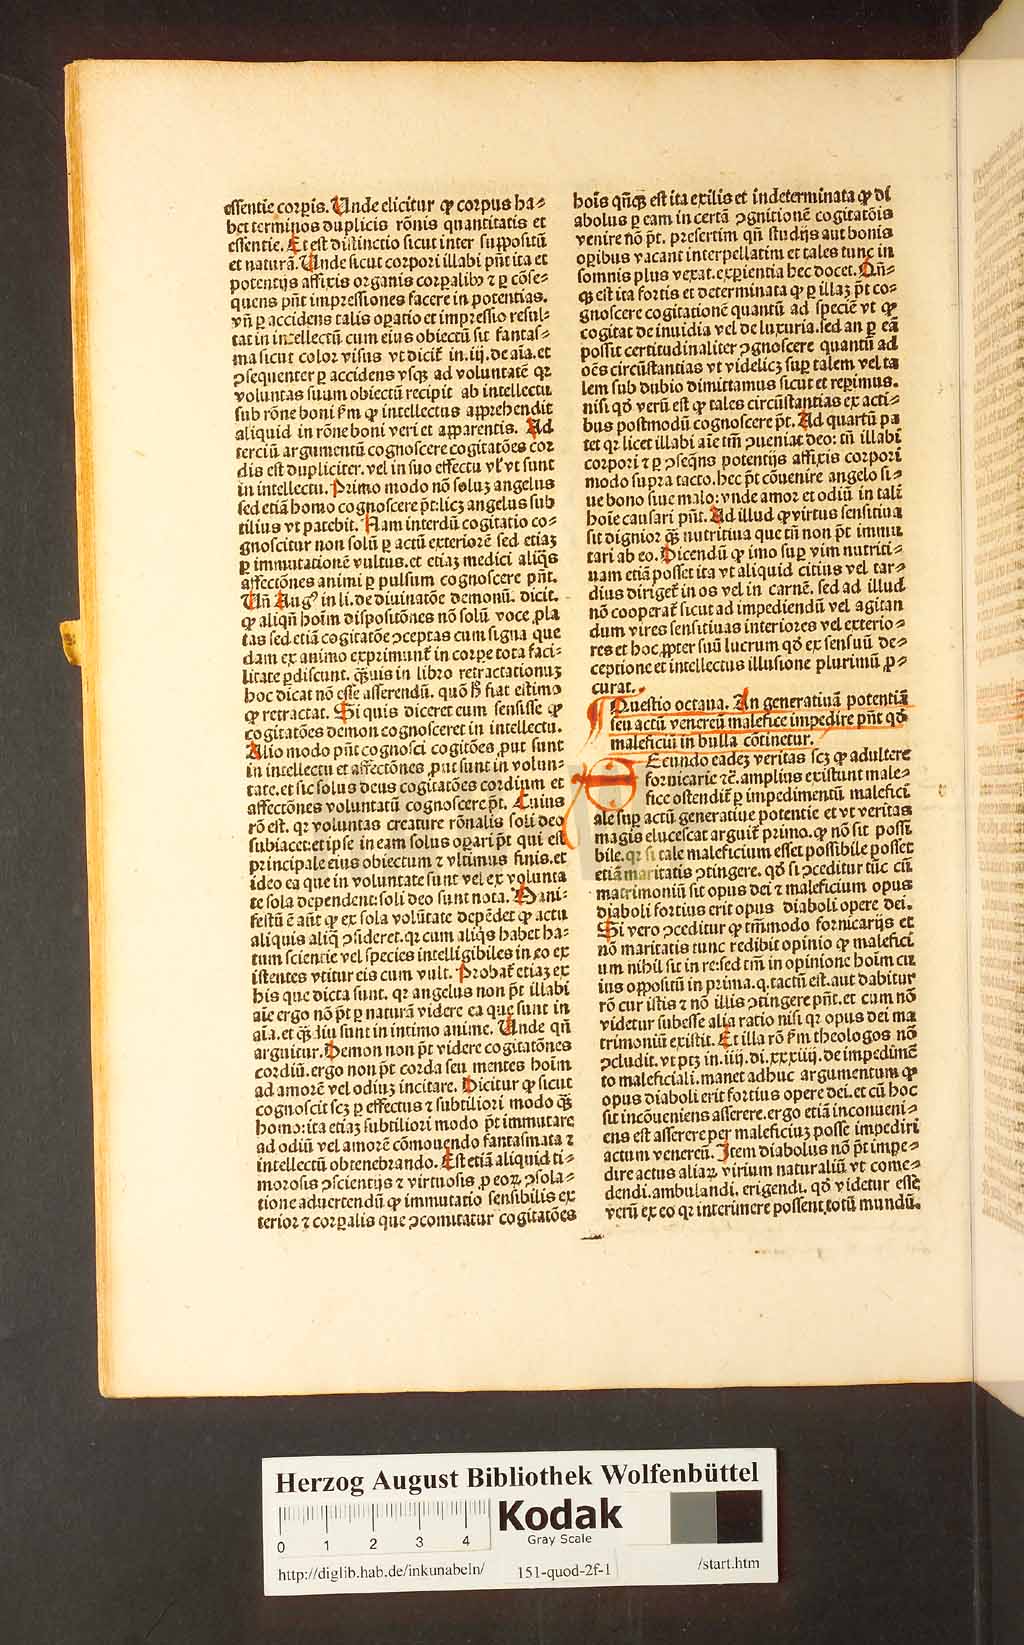 essentie corpis. Unde elicitur ꝙ corpus ha⸗
bet terminos duplicis rõnis quantitatis et
essentie. Et est distinctio sicut inter suppositũ
et naturã. Unde sicut corpori illabi pñt ita et
potentijs affixis organis corꝑalibꝰ ⁊ ꝑ cõse⸗
quens pñt impressiones facere in potentias.
vñ ꝑ accidens talis oꝑatio et impressio resul⸗
tat in intellectũ cum eius obiectũ sit fantas⸗
ma sicut color visus vt dicit̃ in.iij.de aĩa.et
ↄsequenter ꝑ accidens vsqꝫ ad voluntatẽ qꝛ
voluntas suum obiectũ recipit ab intellectu
sub rõne boni ẜm ꝙ intellectus apprehendit
aliquid in rõne boni veri et apparentis. Ad
terciũ argumentũ cognoscere cogitatões cor
dis est dupliciter. vel in suo effectu vl̕ vt sunt
in intellectu. Primo modo nõ soluꝫ angelus
sed etiã homo cognoscere põt. licꝫ angelus sub
tilius vt patebit. Nam interdũ cogitatio co⸗
gnoscitur non solũ ꝑ actũ exteriorẽ sed etiaꝫ
ꝑ immutationẽ vultus. et etiaꝫ medici aliq̃s
affectõnes animi ꝑ pulsum cognoscere pñt.
Uñ Augꝰ in li. de diuinatõe demonũ. dicit.
ꝙ aliqñ hoĩm dispositõnes nõ solũ voce ꝓla
tas sed etiã cogitatõe ↄceptas cum signa que
dam ex animo exprimunt̃ in corꝑe tota faci⸗
litate ꝑdiscunt. q̃ꝫuis in libro retractationuꝫ
hoc dicat nõ esse asserendũ. quõ hꝭ fiat estimo
ꝙ retractat. Si quis diceret eum sensisse ꝙ
cogitatões demon cognosceret in intellectu.
Alio modo pñt cognosci cogitões ꝓut sunt
in intellectu et affectõnes ꝓut sunt in volun⸗
tate. et sic solus deus cogitatões cordium et
affectõnes voluntatũ cognoscere põt. Cuius
rõ est. qꝛ voluntas creature rõnalis soli deo
subiacet. et ipse in eam solus oꝑari põt qui est
principale eius obiectum ⁊ vltimus finis. et
ideo ea que in voluntate sunt vel ex volunta
te sola dependent: soli deo sunt nota. Mani⸗
festũ ẽ aũt ꝙ ex sola volũtate depẽdet ꝙ actu
aliquis aliq̃ ↄsideret. qꝛ cum aliq̃s habet ha⸗
tum scientie vel species intelligibiles in eo ex
istentes vtitur eis cum vult. Probat̃ etiaꝫ ex
his que dicta sunt. qꝛ angelus non põt illabi
aĩe ergo nõ põt ꝑ naturã videre ea que sunt in
aĩa. et q̃ꝫdiu sunt in intimo anime. Unde qñ
arguitur. Demon non põt videre cogitatõnes
cordiũ. ergo non põt corda seu mentes hoĩm
ad amorẽ vel odiuꝫ incitare. Dicitur ꝙ sicut
cognoscit scꝫ ꝑ effectus ⁊ subtiliori modo q̃ꝫ
homo: ita etiaꝫ subtiliori modo põt immutare
ad odiũ vel amorẽ cõmouendo fantasmata ⁊
intellectũ obtenebrando. Est etiã aliquid ti⸗
morosis ↄscientijs ⁊ virtuosis ꝓ eoꝝ ↄsola⸗
tione aduertendũ ꝙ immutatio sensibilis ex
terior ⁊ corꝑalis que ↄcomitatur cogitatões
hoĩs qñqꝫ est ita exilis et indeterminata ꝙ di
abolus ꝑ eam in certã ↄgnitionẽ cogitatõis
venire nõ põt. presertim qñ studijs aut bonis
oꝑibus vacant interpellatim et tales tunc in
somnis plus vexat. exꝑientia hec docet. Qñ⸗
qꝫ est ita fortis et determinata ꝙ ꝑ illaꝫ põt co⸗
gnoscere cogitationẽ quantũ ad speciẽ vt ꝙ
cogitat de inuidia vel de luxuria. sed an ꝑ eã
possit certitudinaliter ↄgnoscere quantũ ad
oẽs circũstantias vt videlicꝫ suꝑ talem vel ta
lem sub dubio dimittamus sicut et reꝑimus.
nisi qꝺ verũ est ꝙ tales circũstantias ex acti⸗
bus postmodũ cognoscere põt. Ad quartũ pa
tet qꝛ licet illabi aĩe tm̃ ↄueniat deo: tñ illabi
corpori ⁊ ꝑ ↄseq̃ns potentijs affixis corpori
modo supra tacto. hec põt cõuenire angelo si⸗
ue bono siue malo: vnde amor et odiũ in tali
hoĩe causari pñt. Ad illud ꝙ virtus sensitiua
sit dignior q̃ꝫ nutritiua que tñ non põt immu
tari ab eo. Dicendũ ꝙ imo suꝑ vim nutriti⸗
uam etiã posset ita vt aliquid citius vel tar⸗
dius diriget̃ in os vel in carnẽ. sed ad illud
nõ cooperat̃ sicut ad impediendũ vel agitan
dum vires sensitiuas interiores vel exterio⸗
res et hoc ꝓpter suũ lucrum qꝺ ex sensuũ de⸗
ceptione et intellectus illusione plurimũ ꝓ⸗
curat.
Questio octaua. An generatiuã potentiã
seu actũ venereũ malefice impedire pñt qꝺ
maleficiũ in bulla cõtinetur.
Secundo eadeꝫ veritas scꝫ ꝙ adultere
fornicarie ⁊c̃. amplius existunt male⸗
fice ostendit̃ ꝑ impedimentũ malefici
ale suꝑ actũ generatiue potentie et vt veritas
magis elucescat arguit̃ primo. ꝙ nõ sit possi
bile. qꝛ si tale maleficium esset possibile posset
etiã maritatis ↄtingere. qꝺ si ↄceditur tũc cũ
matrimoniũ sit opus dei ⁊ maleficium opus
diaboli fortius erit opus diaboli opere dei.
Si vero ↄceditur ꝙ tm̃modo fornicarijs et
nõ maritatis tunc redibit opinio ꝙ malefici
um nihil sit in re: sed tm̃ in opinione hoĩm cu
ius oppositũ in prima. q. tactũ est. aut dabitur
rõ cur istis ⁊ nõ illis ↄtingere pñt. et cum nõ
videtur subesse alia ratio nisi qꝛ opus dei ma
trimoniũ existit. Et illa rõ ẜm theologos nõ
ↄcludit. vt ptꝫ in. iiij. di. xxxiiij. de impedimẽ
to maleficiali. manet adhuc argumentum ꝙ
opus diaboli erit fortius opere dei. et cũ hoc
sit incõueniens asserere. ergo etiã inconueni⸗
ens est asserere per maleficiuꝫ posse impediri
actum venereũ. Item diabolus nõ põt impe⸗
dire actus aliaꝝ virium naturaliũ vt come⸗
dendi. ambulandi. erigendi. qꝺ videtur esse
verũ ex eo qꝛ interimere possent totũ mundũ.
Herzog August Bibliothek Wolfenbüttel
Kodak
Gray Scale
0 1 2 3 4
http://diglib.hab.de/inkunabeln/ 151-quod-2f-1 /start.htm